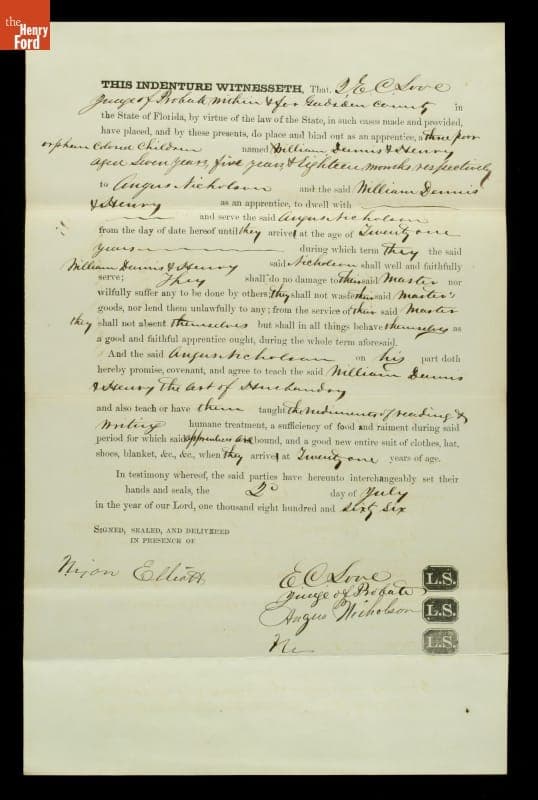 the
Henry
Ford
THIS INDENTURE WITNESSETH, That, I, E C Love
Judge of Probate within & for Gadsden County in
the State of Florida, by virtue of the law of the State, in such cases made and provided,
have placed, and by these presents, do place and bind out as an apprentice, a three poor
orphan Colored Children named, William Dennis & Henry
aged Seven years, five years, & Eighteen months respectively
to Angus Nicholson and the said William Dennis
& Henry as an apprentice, to dwell with
and serve the said Angus Nicholson
from the day of date hereof until they arrive at the age of Twenty one
years during which term they the said
William Dennis & Henry said Nicholson shall well and faithfully
serve; They shall do no damage to their said Master nor
wilfully suffer any to be done by others; they shall not waste their said Master's
goods, nor lend them unlawfully to any; from the service of their said Master
they shall not absent themselves but shall in all things behave themselves as
a good and faithful apprentice ought, during the whole term aforesaid.
And the said Angus Nicholson on his part doth
hereby promise, covenant, and agree to teach the said William Dennis
& Henry the art of Husbandry
and also teach or have them taught the rudiments of reading &
writing humane treatment, a sufficiency of food and raiment during said
period for which said apprentices are bound, and a good new entire suit of clothes, hat,
shoes, blanket, &c., &c., when they arrive at Twenty one years of age.
In testimony whereof, the said parties have hereunto interchangeably set their
hands and seals, the 2d day of July
in the year of our Lord, one thousand eight hundred and sixty six
SIGNED, SEALED, AND DELIVERED
IN PRESENCE OF
Nixon Elliott
E C Love L.S.
Judge of Probate
Angus Nicholson L.S.
Ni L.S.